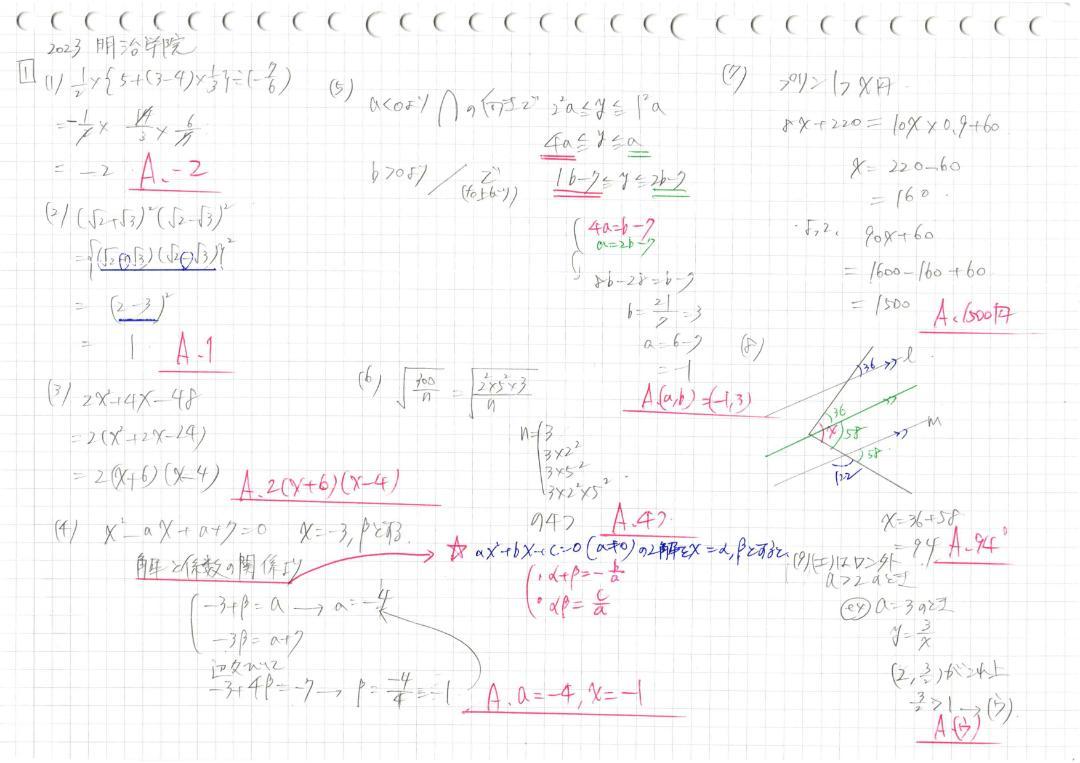 2023 明治学院
1
(1) 1/2×{5+(3-4)×1/3}÷(-7/6)
= -2 A.-2
(2) (√2+√3)²(√2-√3)²
={(√2+√3)(√2-√3)}²
= (2-3)²
= 1 A.1
(3) 2x²+4x-48
=2(x²+2x-24)
=2(x+6)(x-4) A.2(x+6)(x-4)
(4) x²-ax+a+7=0 x=-3, βとする.
解と係数の関係より
-3+β=a → a=-4
-3β=a+7
-3+4β=-7 → β=-4/4=-1
A. a=-4, x=-1
☆ ax²+bx+c=0 (a≠0)の2解をx=α,βとすると、
・α+β=-b/a
・αβ=c/a
(5)
a<0より 2²a≦y≦1²a
4a≦y≦a
b>0より 1b-7≦y≦2b-7
4a=b-7
a=2b-7
8b-28=b-7
b=21/7=3
a=6-7
=-1
A.(a,b)=(-1,3)
(6) √300/n = √2²×5²×3/n
n= 3
3×2²
3×5²
3×2²×5²
の4つ A.4つ
(7)
8x+220=10x×0.9+60
x=220-60
=160
90x+60
=1500 A.1500円
(8)
36 l
36
x 58 m
58
122
x=36+58
=94 A.94°
a>2のとき
(ex) a=3のとき
y=3/x
(2,3/2)
3/2>1→(う)
A.(う)